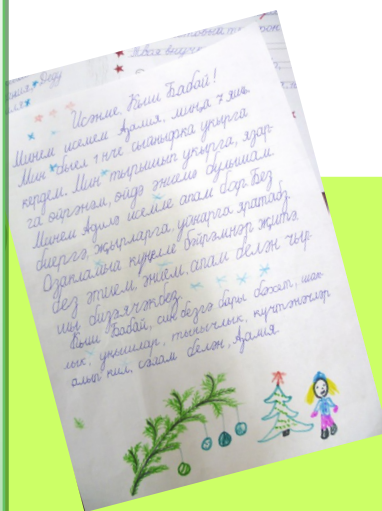 Исәнме, Кыш Бабай!
Минем исемем Азалия, миңа 7 яшь.
Мин быел 1 нче сыйныфка укырга
кердем. Мин тырышып укырга, язар-
га өйрәнәм, өйдә әнигә булышам.
Минем Аделә исемле апам бар. Без
биергә, җырларга, уйнарга яратабыз.
Озакламый күңелле бәйрәмнәр җитә,
без әтием, әнием, апам белән чыр-
шы бизәячәкбез.
Кыш Бабай, син безгә бары бәхет, шат-
лык, уңышлар, тынычлык, күчтәнәчләр
алып кил, сәлам белән, Азалия.